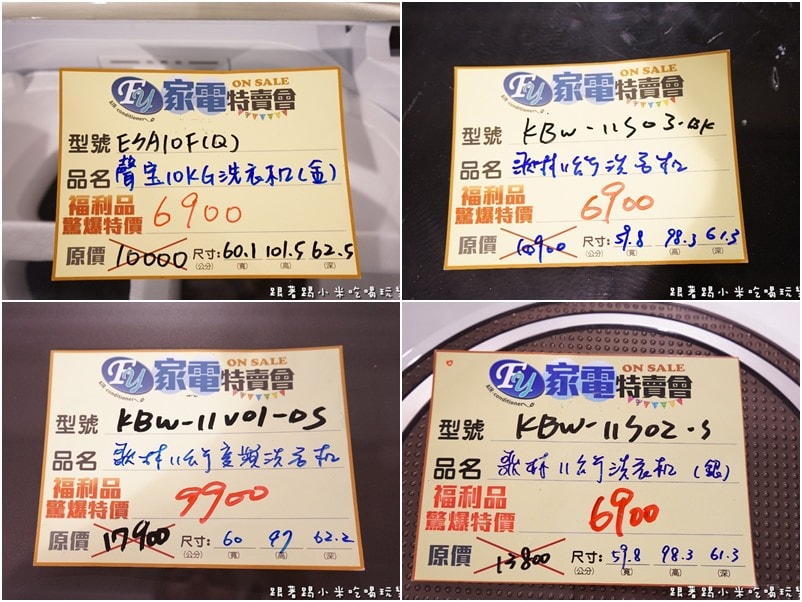 FY 家電特賣會 ON SALE
air conditioner
型號 ESA10F(Q)
品名 聲宝10KG洗衣机(金)
福利品
驚爆特價 6900
原價 10000 尺寸: 60.1 101.5 62.5
(公分) (寬) (高) (深)
跟著踢小米吃喝玩樂
FY 家電特賣會 ON SALE
air conditioner
型號 KBW-11S03-BK
品名 歌林11公斤洗衣机
福利品
驚爆特價 6900
原價 10900 尺寸: 59.8 98.3 61.3
(公分) (寬) (高) (深)
跟著踢小米吃喝玩
FY 家電特賣會 ON SALE
air conditioner
型號 KBW-11V01-DS
品名 歌林11公斤变頻洗衣机
福利品
驚爆特價 9900
原價 17900 尺寸: 60 97 62.2
(公分) (寬) (高) (深)
跟著踢小米吃喝玩樂
FY 家電特賣會 ON SALE
air conditioner
型號 KBW-11S02-S
品名 歌林11公斤洗衣机(銀)
福利品
驚爆特價 6900
原價 13800 尺寸: 59.8 98.3 61.3
(公分) (寬) (高) (深)
跟著踢小米吃喝玩